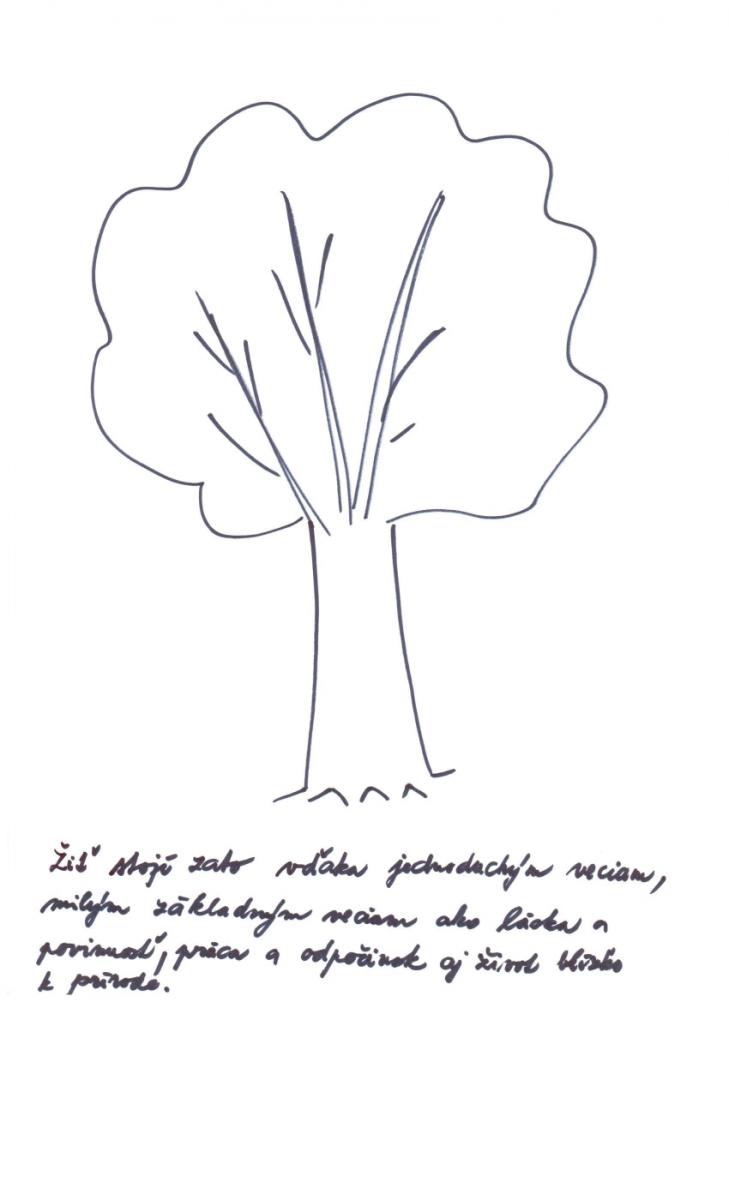 Žiť stojí zato vďaka jednoduchým veciam,
milým základným veciam ako láska a
povinnosť, práca a odpočinok aj život blízko
k prírode.